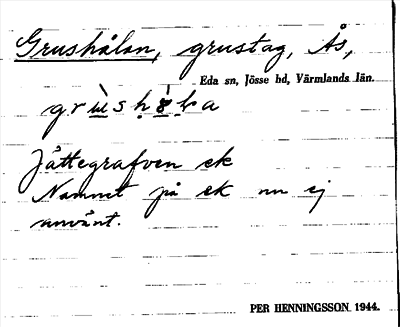 Grushålan, grustag, Ås,
Eda sn, Jösse hd, Värmlands län.
Jättegrafven ek
Namnet på ek nu ej
använt.
PER HENNINGSSON 1944.